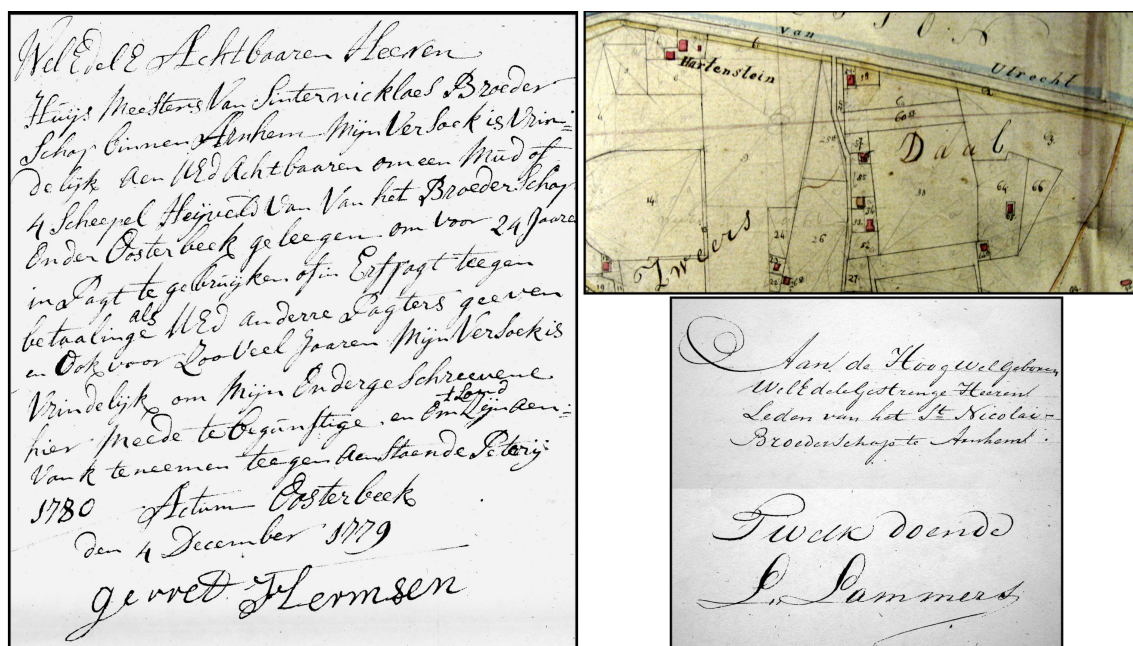 WelEdelE Achtbaaren Heeren
Huijs Meesters Van Sinternicklaes Broeder
Schap binnen Arnhem Mijn VerSoek is Vrin=
delijk aen UEd Achtbaaren om een Mud of
4 Scheepel Heijvelds Van Van het BroederSchap
Onder Oosterbeek geleegen om voor 24 Jaaren
in Pagt te gebruijken of in Erfpagt teegen
betaalinge als UEd anderre Pagters geeven
en Ook voor Zoo Veel Jaaren Mijn VerSoek is
Vrindelijk om Mijn EndergeSchreevene
hier Meede te begunstige en
Vank te neemen teegen aenstaende Peterij
1780 Actum Oosterbeek
den 4 December 1779
gerret Hermsen
van
Utrecht
Hartenstein
Daal
Zweers
14
24
26
27
64
66
Aan de HoogWelgeboren
WelEdeleGestrenge Heeren
Leden van het St. Nicolai-
BroederSchap te Arnhem.
Twelk doende
L. Lammers